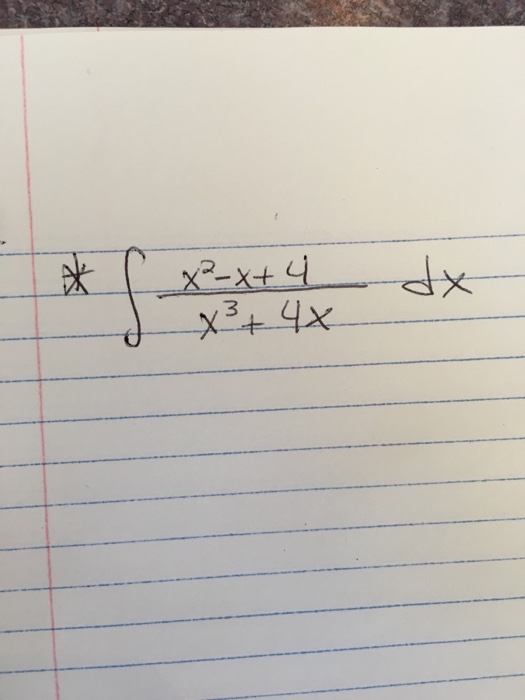 * ∫ x²-x+4 / x³+4x dx